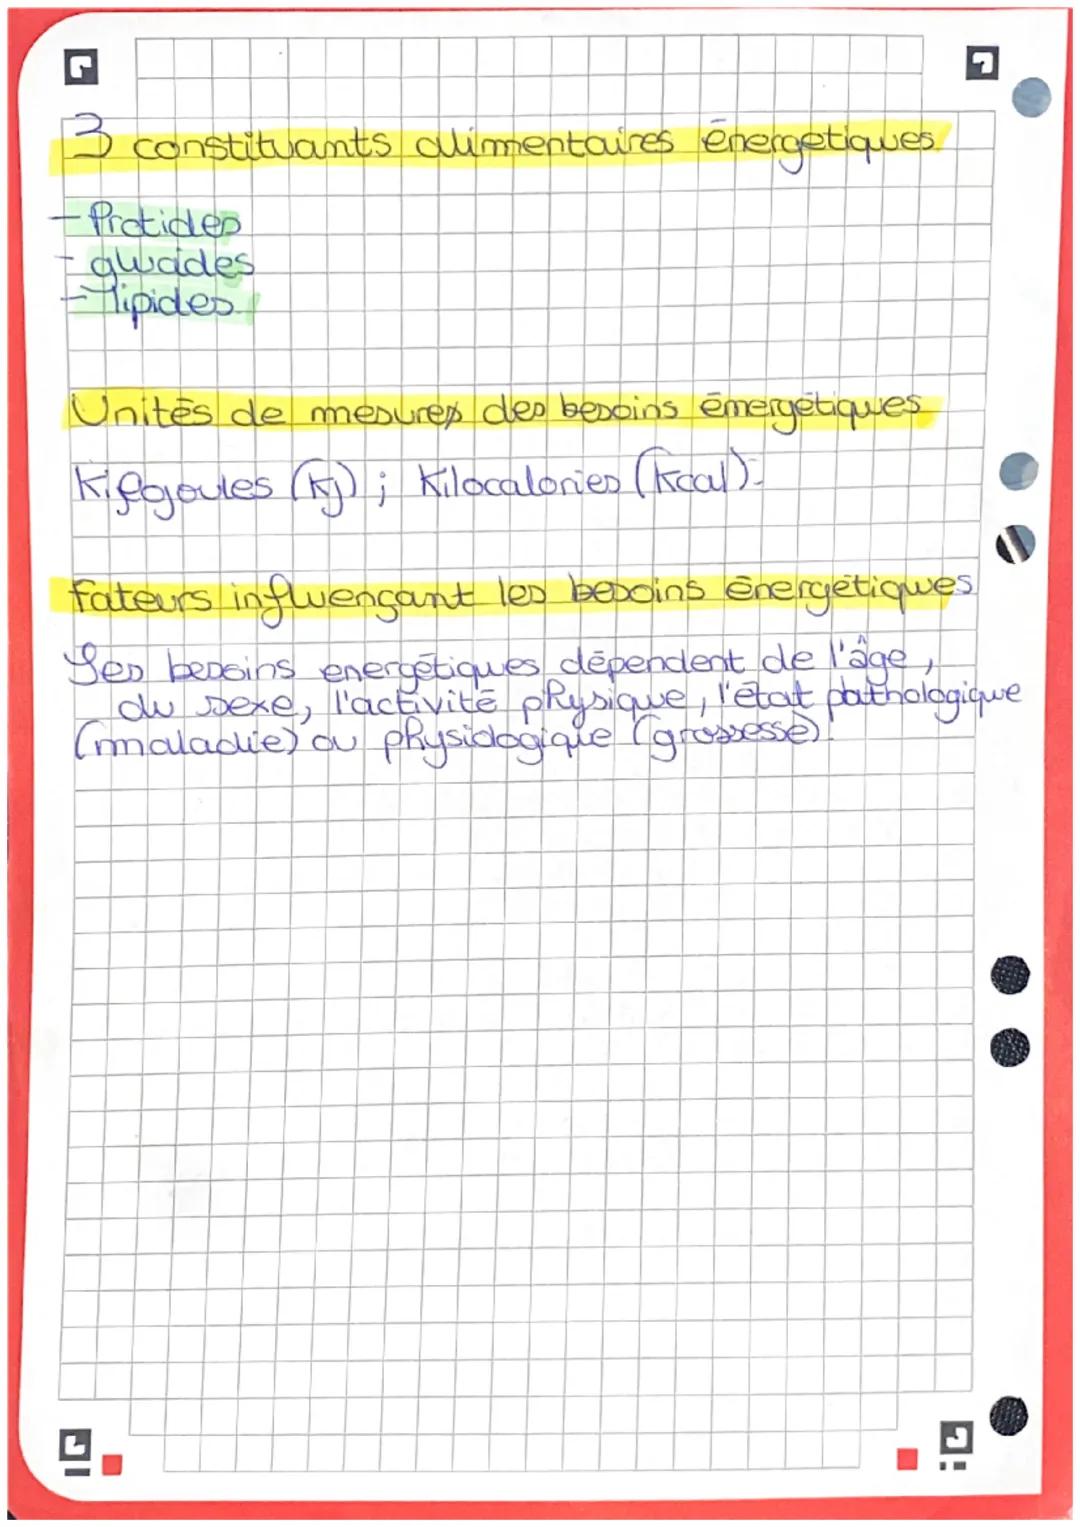 3 constituants alimentaires énergetiques.
- Protides
- glucides
- lipides.
Unités de mesures des besoins émergétiques
Kilojoules (kj) ; Kilocalories (kcal).
fateurs influençant les besoins énergétiques
Les besoins energétiques dépendent de l'âge,
du sexe, l'activité physique, l'état pathologique
(maladie) ou physiologique (grossesse).